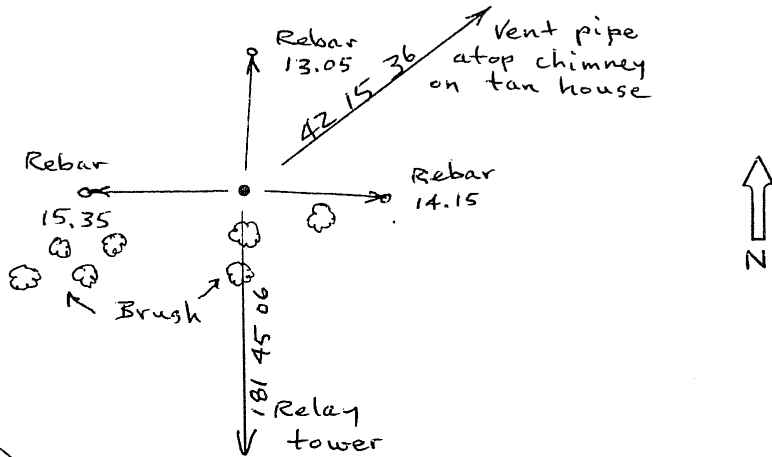 Rebar
13.05
Vent pipe
atop chimney
on tan house
42 15 36
Rebar
15.35
Rebar
14.15
N
Brush
181 45 06
Relay
tower